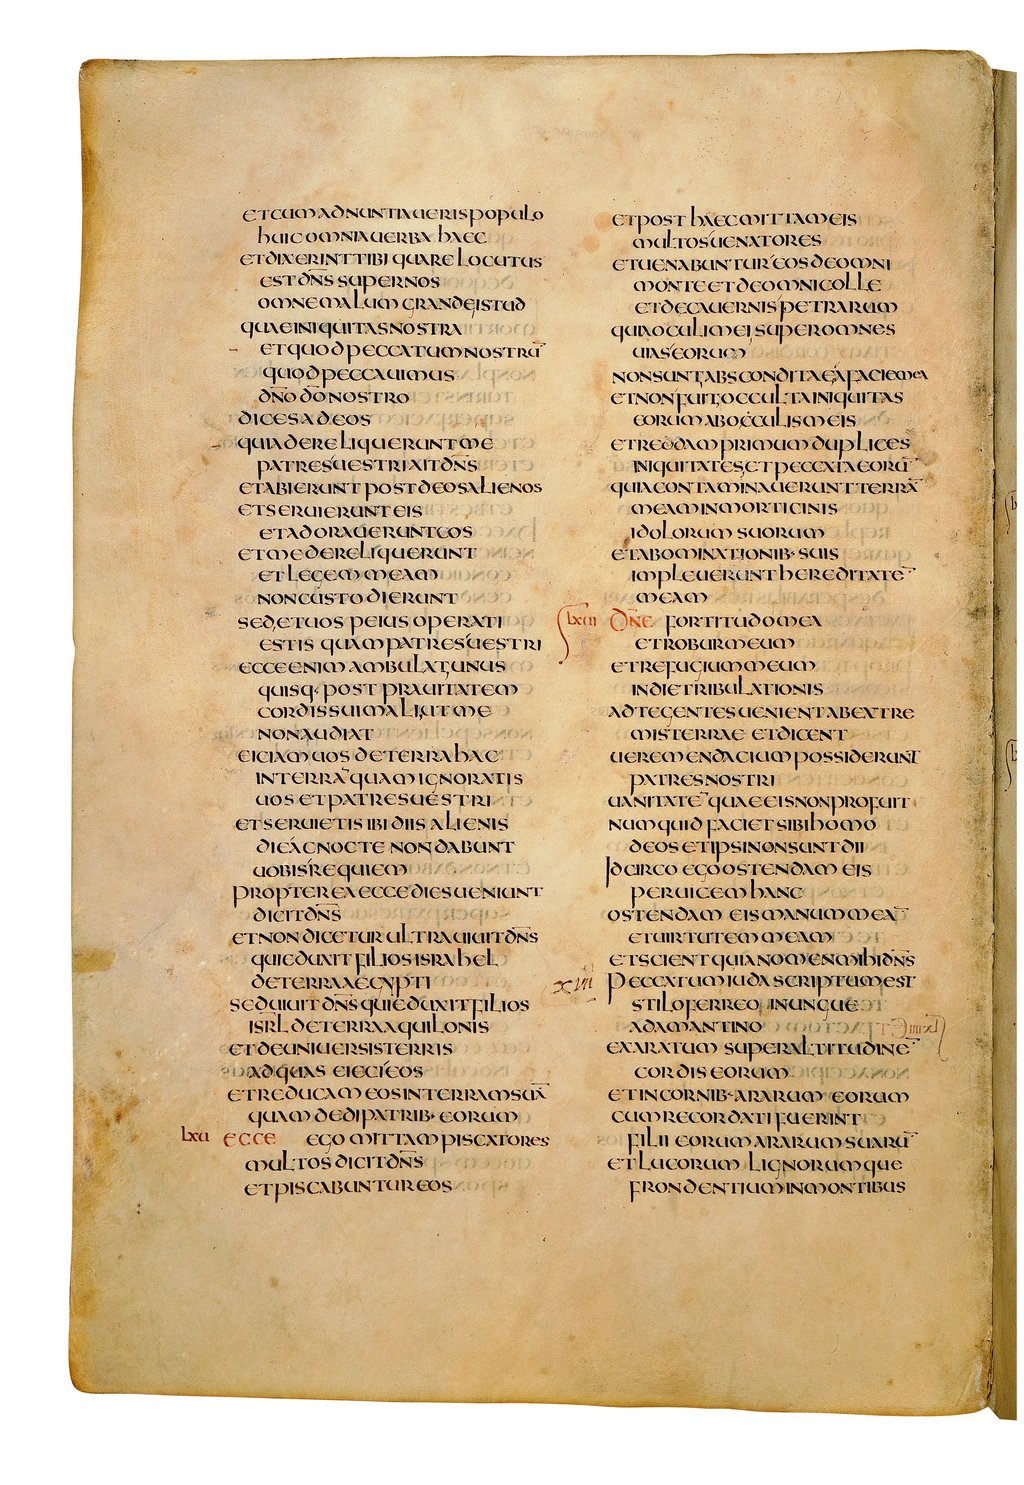 et cum adnuntiaueris populo
huic omnia uerba haec
et dixerint tibi quare locutus
est dn̄s super nos
omne malum grande istud
quae iniquitas nostra
et quod peccatum nostrū
quod peccauimus
dn̄o dō nostro
dices ad eos
quia dereliquerunt me
patres uestri ait dn̄s
et abierunt post deos alienos
et seruierunt eis
et adorauerunt eos
et me derelinquerunt
et legem meam
non custodierunt
sed et uos peius operati
estis quam patres uestri
ecce enim ambulat unus
quisq· post prauitatem
cordis sui mali ut me
non audiat
eiciam uos de terra hac
in terrā quam ignoratis
uos et patres uestri
et seruietis ibi diis alienis
die ac nocte non dabunt
uobis requiem
propterea ecce dies ueniunt
dicit dn̄s
et non dicetur ultra uiuit dn̄s
qui eduxit filios israhel
de terra aegypti
sed uiuit dn̄s qui eduxit filios
isrl̄ de terra aquilonis
et de uniuersis terris
ad quas eieci eos
et reducam eos in terram suā
quam dedi patrib· eorum
lxii ecce ego mittam piscatores
multos dicit dn̄s
et piscabuntur eos
et post haec mittam eis
multos uenatores
et uenabuntur eos de omni
monte et de omni colle
et de cauernis petrarum
quia oculi mei super omnes
uias eorum
non sunt absconditae a facie mea
et non fuit occulta iniquitas
eorum ab oculis meis
et reddam primum duplices
iniquitates et peccata eorū
quia contaminauerunt terrā
meam in morticinis
idolorum suorum
et abominationib· suis
impleuerunt hereditatē
meam
lxiii dn̄e fortitudo mea
et robur meum
et refugium meum
in die tribulationis
ad te gentes uenient ab extre
mis terrae et dicent
uere mendacium possiderunt
patres nostri
uanitatē quae eis non profuit
numquid faciet sibi homo
deos et ipsi non sunt dii
idcirco ego ostendam eis
per uicem hanc
ostendam eis manum meā
et uirtutem meam
et scient quia nomen mihi dn̄s
xiii peccatum iuda scriptum est
stilo ferreo in ungue
adamantino lxiiii
exaratum super altitudinē
cordis eorum
et in cornib· ararum eorum
cum recordati fuerint
filii eorum ararum suarū
et lucorum lignorumque
frondentium in montibus